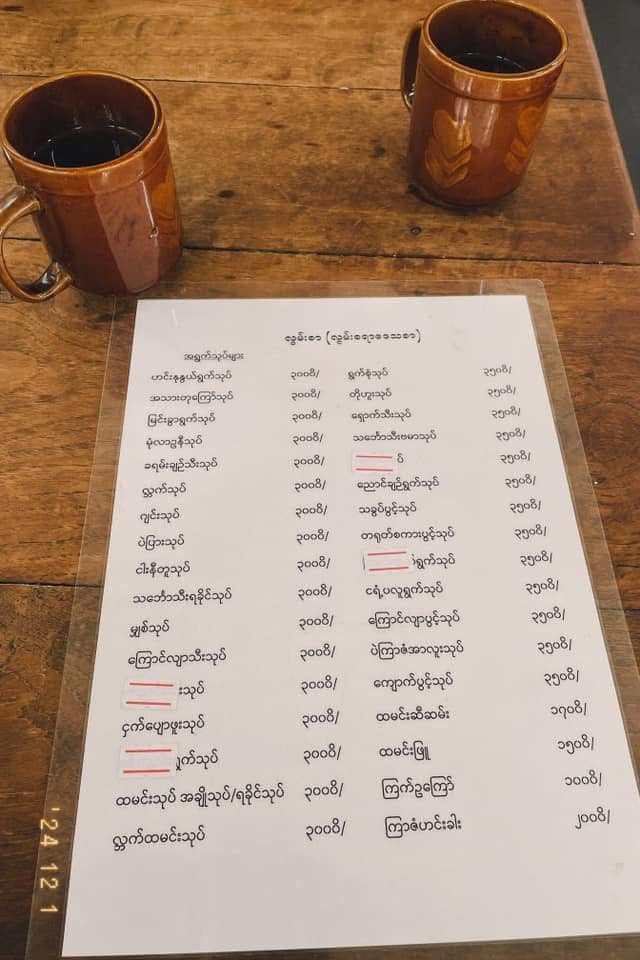 လွမ်းစာ (လွမ်းစရာဒေသစာ)
အရွက်သုပ်များ
ဟင်းနုနွယ်ရွက်သုပ် ၃၀၀၀ိ/ ရွက်စုံသုပ် ၃၅၀၀ိ/
အသားတုကြော်သုပ် ၃၀၀၀ိ/ တိုဟူးသုပ် ၃၅၀၀ိ/
မြင်းခွာရွက်သုပ် ၃၀၀၀ိ/ ရှောက်သီးသုပ် ၃၅၀၀ိ/
မုံလာဥနီသုပ် ၃၀၀၀ိ/ သင်္ဘောသီးဗမာသုပ် ၃၅၀၀ိ/
ခရမ်းချဉ်သီးသုပ် ၃၀၀၀ိ/ ၃၅၀၀ိ/
လ္ဘက်သုပ် ၃၀၀၀ိ/ ညောင်ချဉ်ရွက်သုပ် ၃၅၀၀ိ/
ဂျင်းသုပ် ၃၀၀၀ိ/ သခွပ်ပွင့်သုပ် ၃၅၀၀ိ/
ပဲပြားသုပ် ၃၀၀၀ိ/ တရုတ်စကားပွင့်သုပ် ၃၅၀၀ိ/
ငါးနီတူသုပ် ၃၀၀၀ိ/ ရွက်သုပ် ၃၅၀၀ိ/
သင်္ဘောသီးရခိုင်သုပ် ၃၀၀၀ိ/ ငရံ့ပလူရွက်သုပ် ၃၅၀၀ိ/
မျှစ်သုပ် ၃၀၀၀ိ/ ကြောင်လျာပွင့်သုပ် ၃၅၀၀ိ/
ကြောင်လျာသီးသုပ် ၃၀၀၀ိ/ ပဲကြာဇံအာလူးသုပ် ၃၅၀၀ိ/
းသုပ် ၃၀၀၀ိ/ ကျောက်ပွင့်သုပ် ၃၅၀၀ိ/
ငှက်ပျောဖူးသုပ် ၃၀၀၀ိ/ ထမင်းဆီဆမ်း ၁၇၀၀ိ/
ရွက်သုပ် ၃၀၀၀ိ/ ထမင်းဖြူ ၁၅၀၀ိ/
ထမင်းသုပ် အချိုသုပ်/ရခိုင်သုပ် ၃၀၀၀ိ/ ကြက်ဥကြော် ၁၀၀၀ိ/
လ္ဘက်ထမင်းသုပ် ၃၀၀၀ိ/ ကြာဇံဟင်းခါး ၂၀၀၀ိ/
'24 12 1